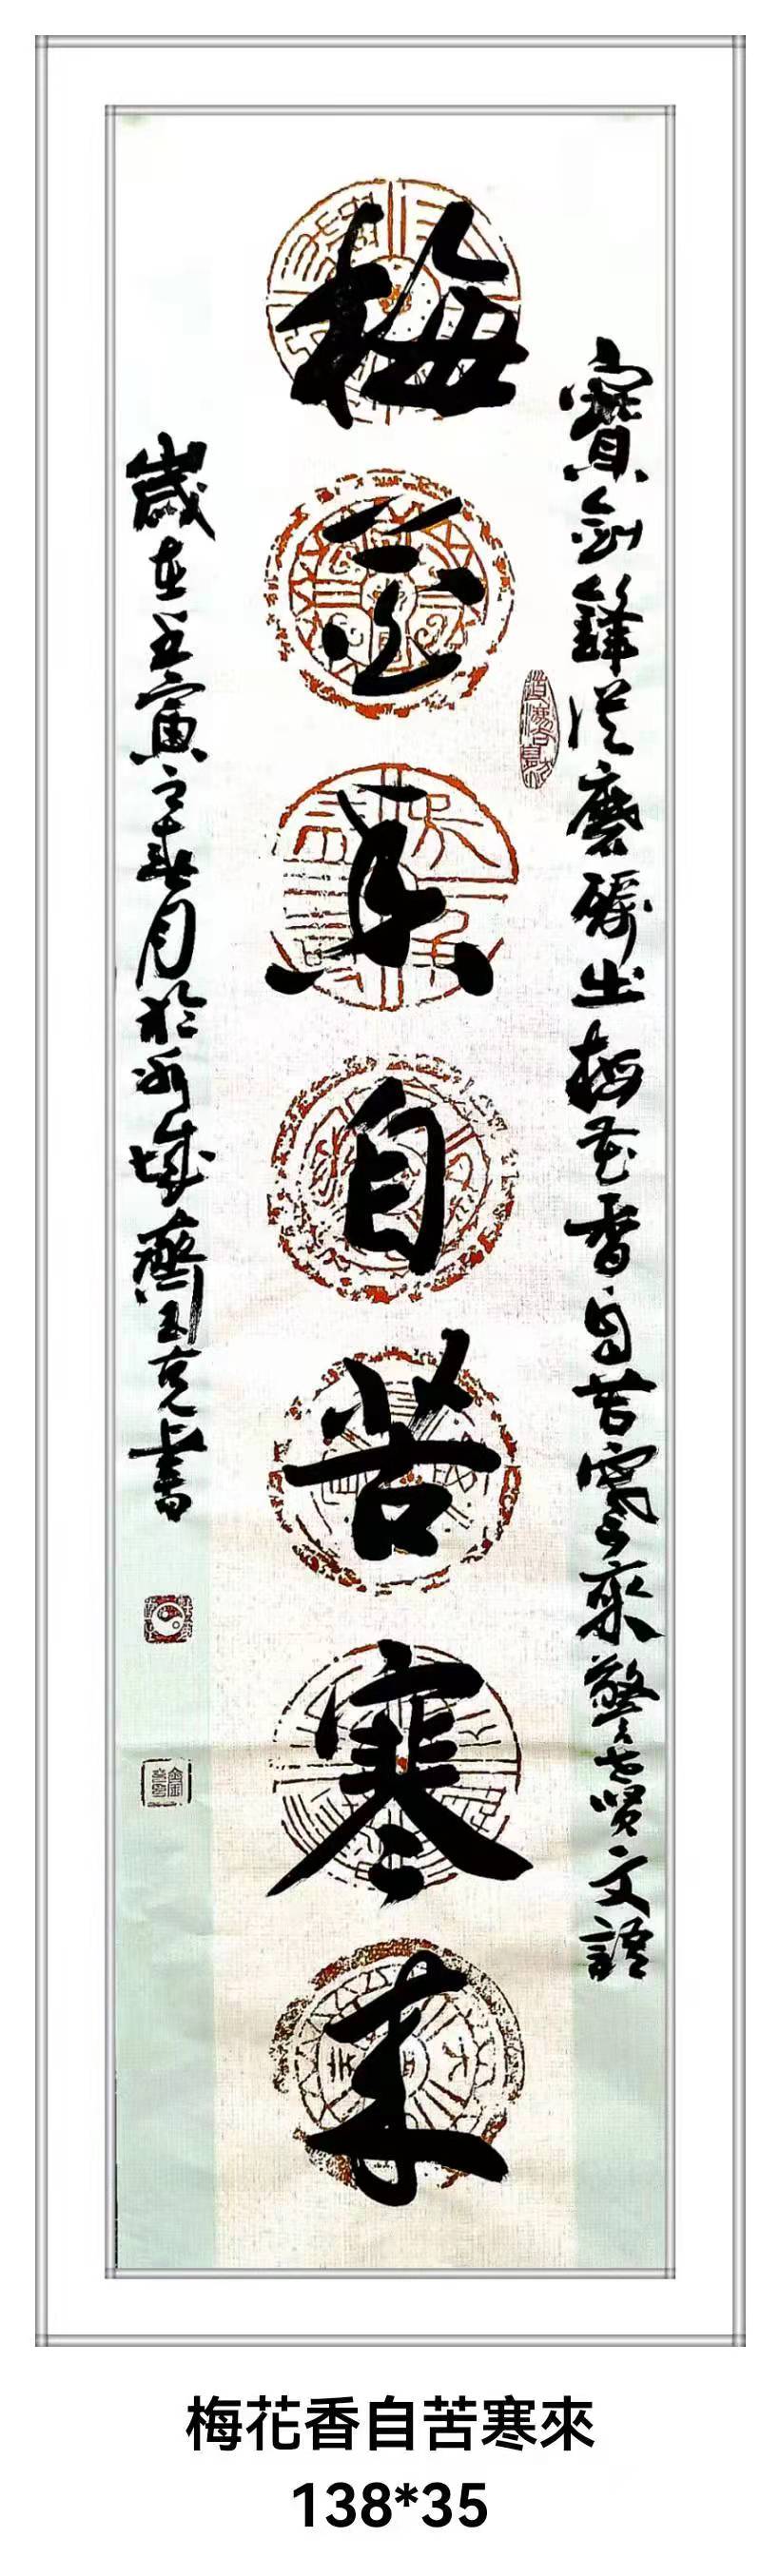 寶劍鋒從磨礪出梅花香自苦寒來警世賢文語
梅花香自苦寒來
歲在壬寅之春月於冰城齊玉克書
梅花香自苦寒來
138*35